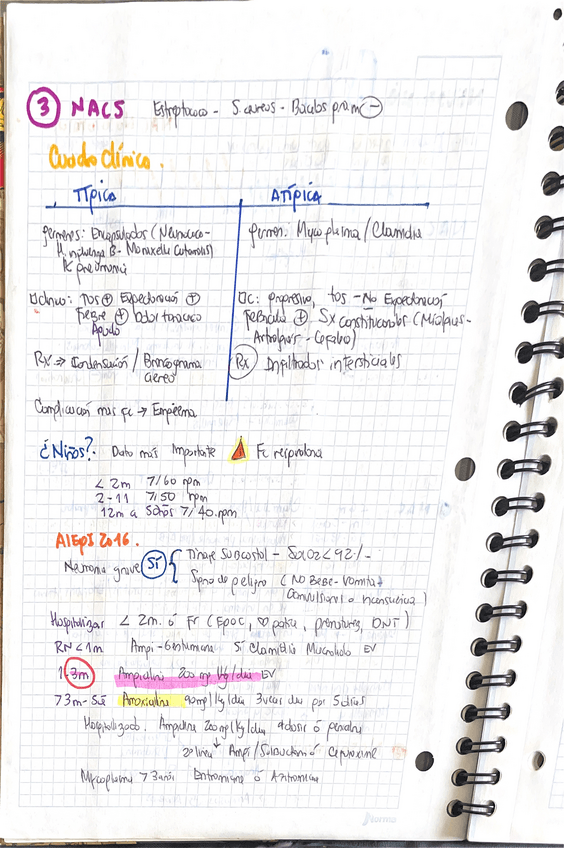 3 NACS Estreptococo - S. aureus - Bacilos gram -
Cuadro clínico.
Típica
Atípica
germenes: Encapsulados (Neumococo-
H. influenza B - Moraxella Catarralis)
K pneumonia
germen: Mycoplasma / Clamidia
Clínico: Tos + Expectoración +
Fiebre + Dolor toracico
Agudo
C: progresivo, tos - No Expectoración
+ Sx constitucionales (Mialgias-
Artralgias - Cefalea)
Rx → Condensación / Broncograma
aereo
Rx Infiltrados intersticiales
Complicación mas fc → Empiema
¿Niños? Dato más importante Fc respiratoria
< 2m 7/60 rpm
2-11 7/50 rpm
12m a 5años 7/40 rpm
AIEPI 2016.
Neumonia grave Sí Tiraje Subcostal - SaO2 < 92%
Signo de peligro (NO Bebe - Vomita +
Convulsiona o inconsciencia)
Hospitalizar < 2m. ó Fr (EPOC, prematurez, DNT)
RN < 1m Ampi - Gentamicina Si Clamidia Macrolido EV
1-3m Ampicilina 200 mg/kg/dia EV
73m-5a Amoxicilina 90mg/kg/dia 3 veces dia por 5 dias
Hospitalizado. Ampicilina 200mg/kg/dia 4 dosis ó penicilina
2º linea Ampi/Sulbactam ó Cefuroxime
Mycoplasma 73años Eritromicina ó Azitromicina
norma